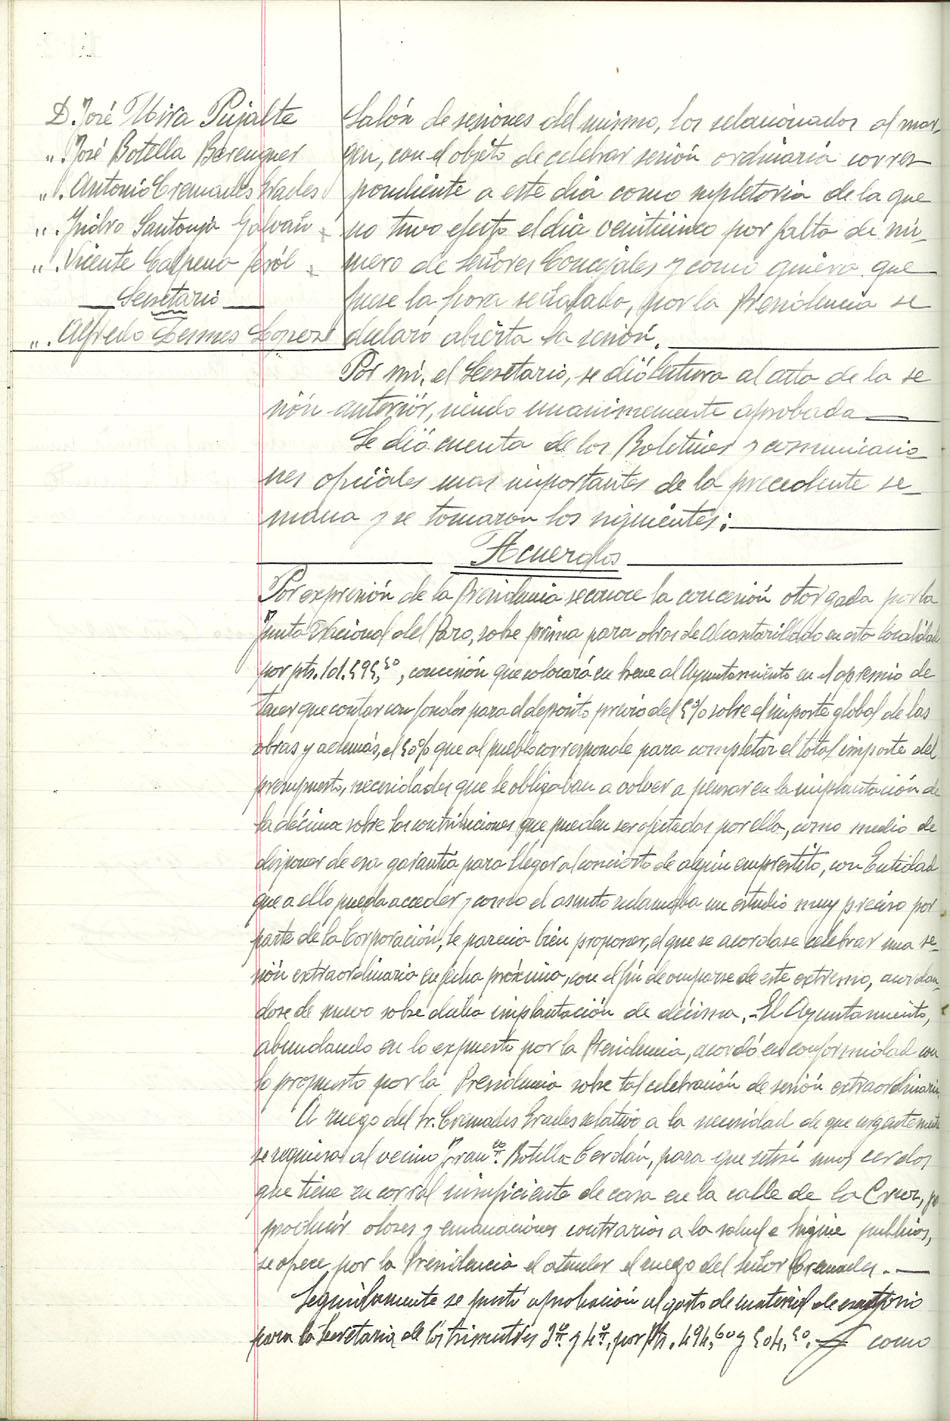 D. José Mira Pujalte
„. José Botella Berenguer
„. Antonio Cremades Prades
„. Isidro Santonja Galvañ
„. Vicente Calpena
Secretario
„. Alfredo Lesmes
Salón de sesiones del mismo, los relacionados al mar-
gen, con el objeto de celebrar sesión ordinaria corres-
pondiente a este dia como supletoria de la que
no tuvo efecto el dia veinticinco por falta de nú-
mero de Señores Concejales y como quiera que
fuese la hora señalada, por la Presidencia se
declaró abierta la sesión.
Por mi, el Secretario, se dió lectura al acta de la se
sión anterior, siendo unanimemente aprobada
Se dió cuenta de los Boletines y comunicacio-
nes oficiales mas importantes de la precedente se-
mana y se tomaron los siguientes:
Acuerdos
Por expresión de la Presidencia se conoce la concesión otorgada por la
Junta Nacional del Paro, sobre prima para obras de Alcantarillado en esta localidad
por pts. concesión que colocará en breve al Ayuntamiento en el apremio de
tener que contar con fondos para el depósito previo del 5% sobre el importe global de las
obras y además, el 50% que al pueblo corresponde para completar el total importe del
presupuesto, necesidades que le obligaban a volver a pensar en la implantación de
la décima sobre las contribuciones que pueden ser afectadas por ella, como medio de
disponer de esa garantia para llegar al concierto de algún empréstito, con Entidad
que a ello pueda acceder y como el asunto reclamaba un estudio muy preciso por
parte de la Corporación, le parecia bien proponer, el que se acordase celebrar una se-
sión extraordinaria en fecha próxima, con el fin de ocuparse de este extremo, acordan-
dose de nuevo sobre dicha implantación de décima.- El Ayuntamiento,
abundando en lo expuesto por la Presidencia, acordó en conformidad con
lo propuesto por la Presidencia sobre tal celebración de sesión extraordinaria
A ruego del Sr. Cremades Prades relativo a la necesidad de que urgentemente
se requiera al vecino Franco. Botella Cerdán, para que retire unos cerdos
que tiene en corral insuficiente de casa en la calle de la Cruz,
producir olores y emanaciones contrarios a la salud e higiene publicos,
se ofrece por la Presidencia el atender el ruego del señor Cremades.-
Seguidamente se prestó aprobación al gasto de material de escritorio
para la Secretaria de los trimestres 3º y 4º, por Pts. 494,60 y 504,50. como